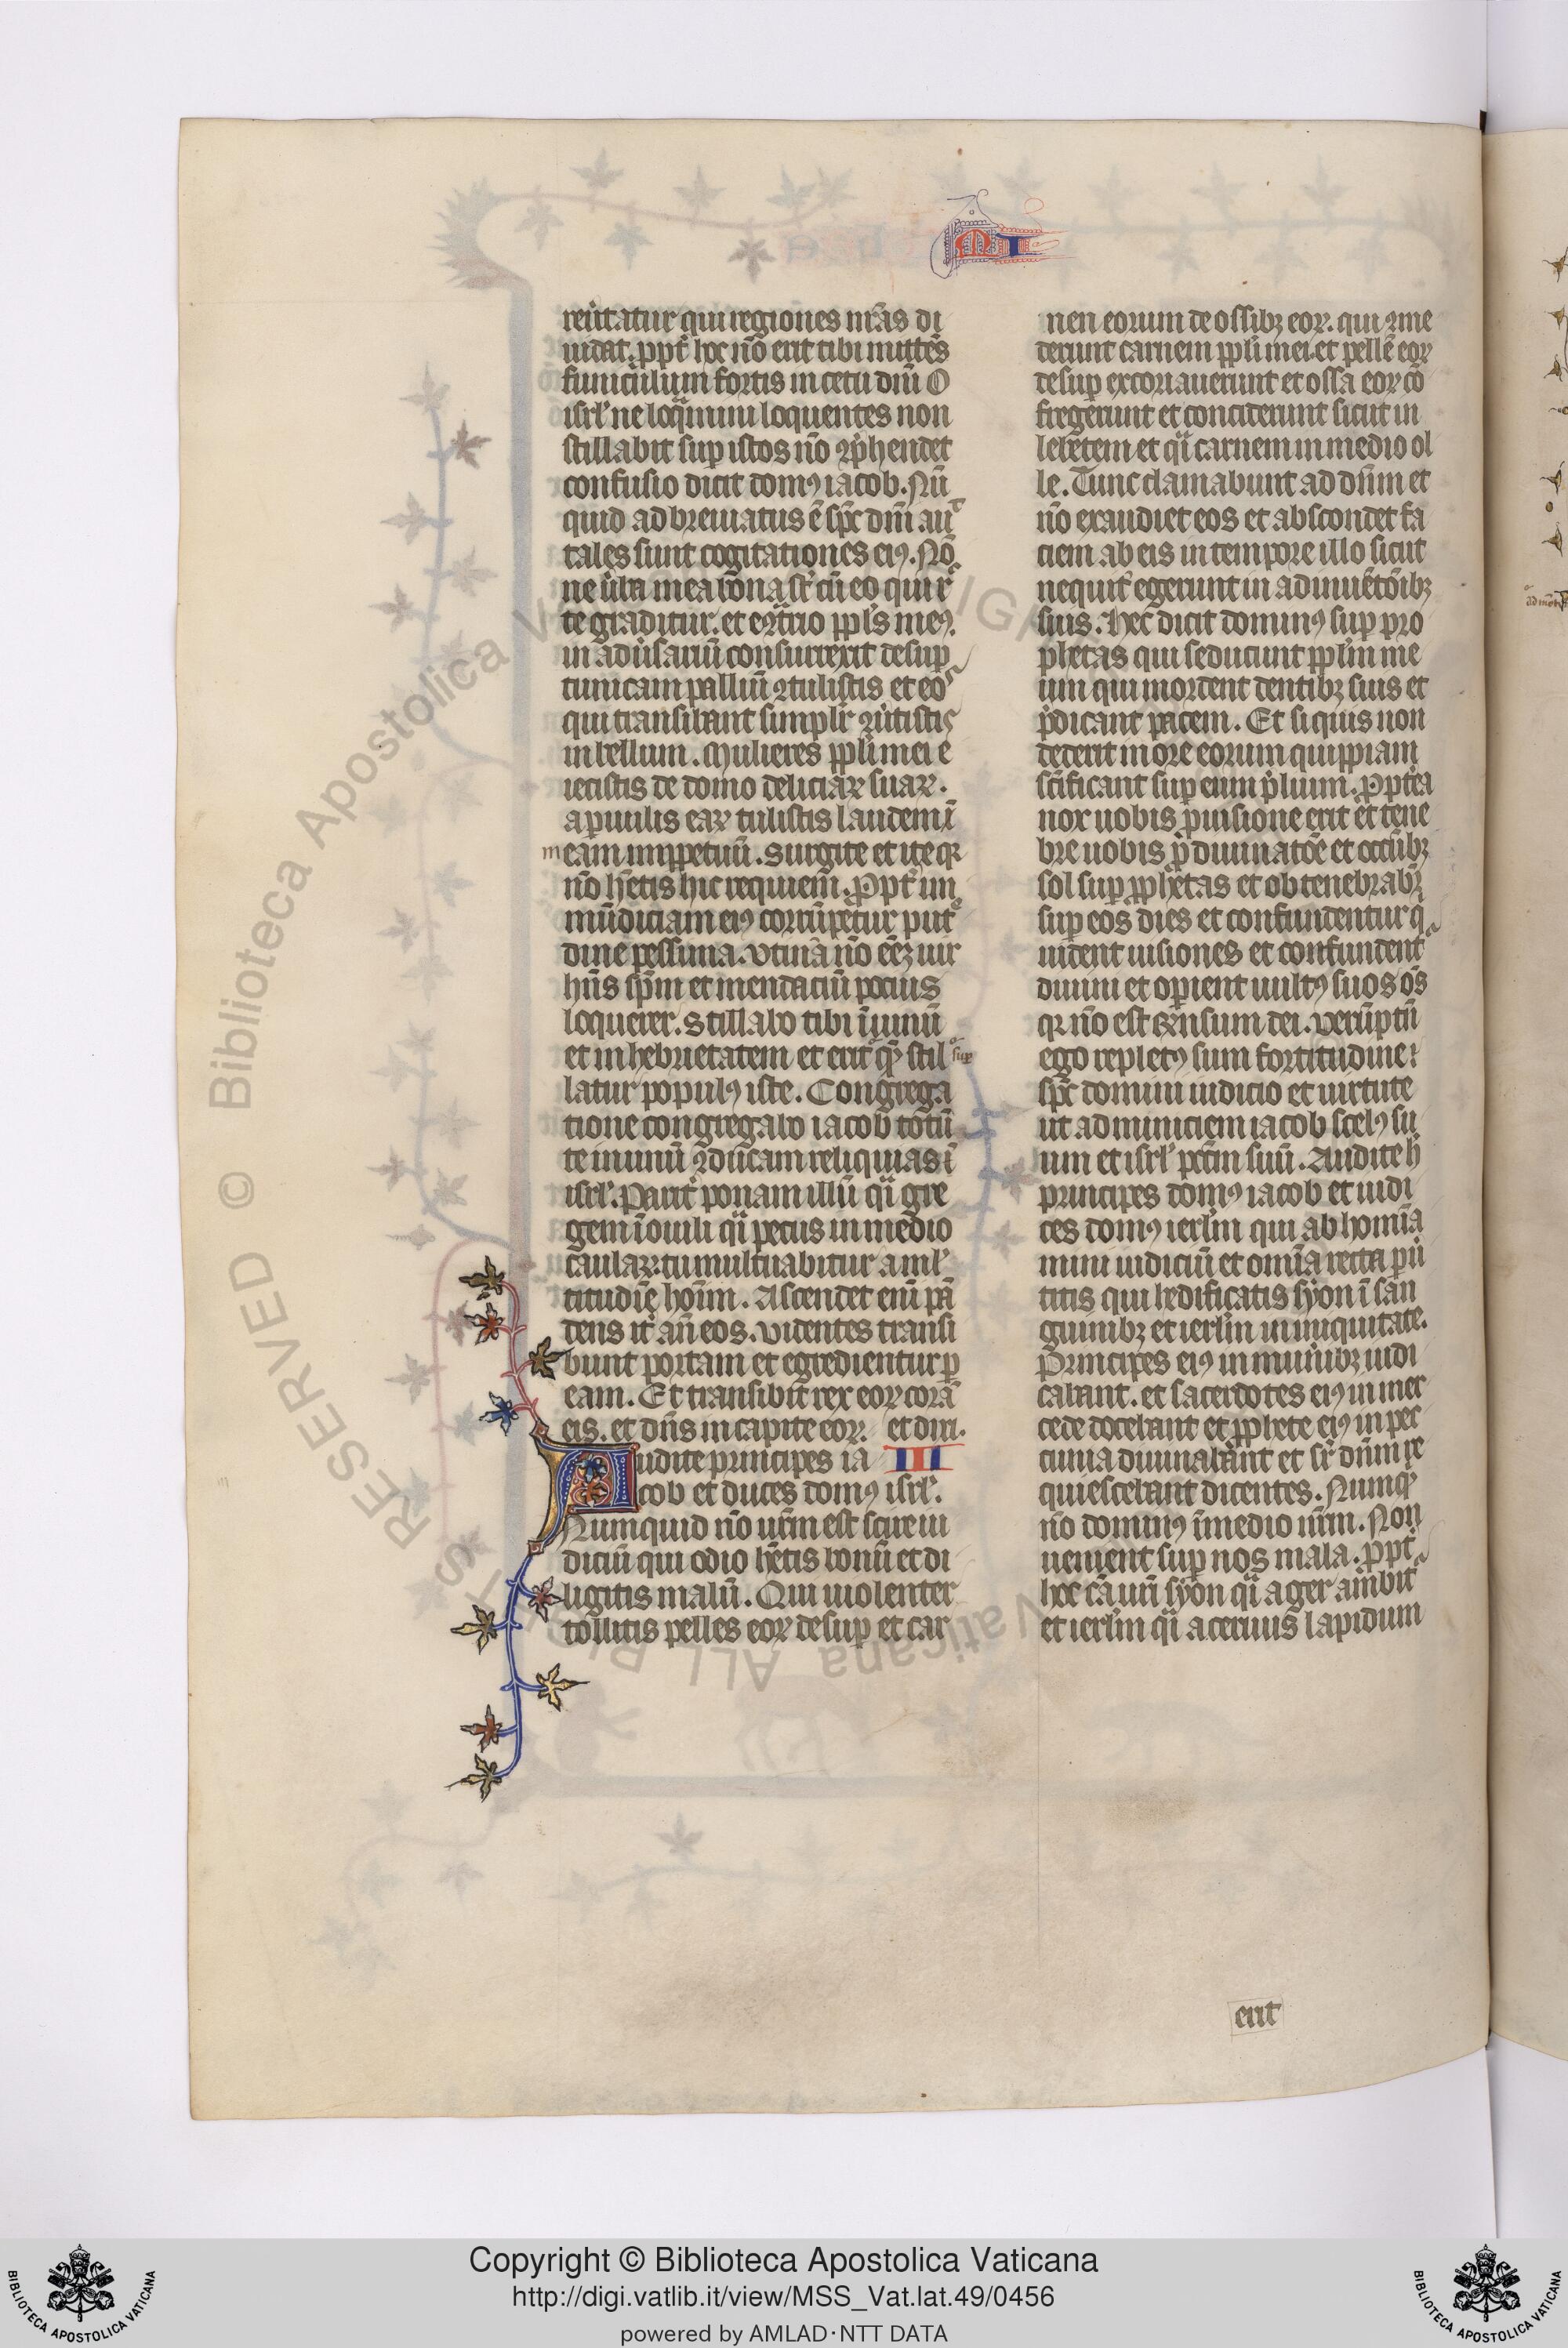 MI
reũtatur qui regiones nr̃as di
uidat. ppt̃ hoc nõ erit tibi mittẽs
funiculum sortis in cetu dñi O
isrl' ne loquimini loquentes non
stillabit sup istos nõ ꝯp̃hendet
confusio dicit domꝰ iacob. Nũ
quid adbreuiatus ẽ sp̃c dñi aut̃
tales sunt cogitationes eiꝰ. Nõ
ne ũba mea bõna st̃ cũ eo qui rc̃
te graditur. et eꝯtrio ppl's meꝰ
in adũsariũ consurrexit desup
tunicam palliũ ꝯtulistis et eos
qui transibant simplr̃ ꝯũtistis
in bellum. Mulieres pplĩ mei e
iecistis de domo deliciaꝝ suaꝝ.
a puulis eaꝝ tulistis laudem ĩ
m eam imppetuũ. Surgite et ite qꝛ
nõ hẽtis hic requiem. Ppt̃ im
mũdiciam eiꝰ corrũpetur putre
dine pessima. Utinã nõ eẽꝫ uir
hñs sp̃m et mendaciũ pocius
loquerer. Stillabo tibi ĩ uinũ
et in hebrietatem et erit qꝫ stil sup
latur populꝰ iste. Congrega
tione congregabo iacob totũ
te in unũ ꝯducam reliquias ĩ
isrl'. Parit̃ ponam illũ qi gre
gem ĩ ouili qi pecus in medio
caulaꝝ tumultuabitur a ml'
titudĩe hoĩm. Ascendet enĩ pã
dens it̃ añ eos. Uidentes transi
bunt portam et egredientur p
eam. Et transibit rex eoꝝ corã
eis. et dñs in capite eoꝝ. et dixi.
Audite principes ia III
cob et duces domꝰ isrl'.
Numquid nõ ur̃m est scire iu
diciũ qui odio hẽtis bonũ et di
ligitis malũ. Qui uiolenter
tollitis pelles eoꝝ desup et car
nen eorum de ossibꝫ eoꝝ. qui ꝯme
derunt carnem pplĩ mei et pellẽ eoꝝ
desup excoriauerunt et ossa eoꝝ cõ
fregerunt et conciderunt sicut in
lebetem et qi carnem in medio ol
le. Tunc clamabunt ad dñm et
nõ exaudiet eos et abscondet fa
ciem ab eis in tempore illo sicut
nequit̃ egerunt in adinuẽtõibꝫ
suis. Hec dicit dominꝰ sup pro
phetas qui seducunt pplm̃ me
um qui mordent dentibꝫ suis et
p̃dicant pacem. Et si quis non
dederit in ore eorum quippiam
sc̃ificant sup eum p̃lium. Pptẽa
nox uobis p uisione erit et tene
bre uobis p diuinatõe et occũbꝫ
sol sup pphetas et obtenebrabꝛ
sup eos dies et confundentur q̃
uident uisiones et confundent̃
diuini et opient uultꝰ suos oẽs
qꝛ nõ est rñsum dei. Uerũptñ
ego repletꝰ sum fortitudine
sp̃c domini iudicio et uirtute
ut adnunciem iacob scelꝰ su
um et isrl' pctm̃ suũ. Audite h̃
principes domꝰ iacob et iudi
ces domꝰ isrl'm qui abhomĩa
mini iudiciũ et omĩa recta pũ
titis qui hedificatis syon ĩ san
guinibꝫ et ierlm̃ in iniquitate.
Principes eiꝰ in muñibꝫ iudi
cabant. et sacerdotes eiꝰ in mer
cede docebant et pphete eiꝰ in pec
cunia diuinabant et sr̃ dñm re
quiescebant dicentes. Numqꝫ
nõ dominꝰ ĩ medio nr̃m. Non
uenient sup nos mala. ppt̃
hoc cã uñ syon qi ager arabit̃
et ierlm̃ qi aceruus lapidum
erit
© Biblioteca Apostolica Vaticana ALL RIGHTS RESERVED
Copyright © Biblioteca Apostolica Vaticana
http://digi.vatlib.it/view/MSS_Vat.lat.49/0456
powered by AMLAD·NTT DATA
BIBLIOTECA APOSTOLICA VATICANA
BIBLIOTECA APOSTOLICA VATICANA